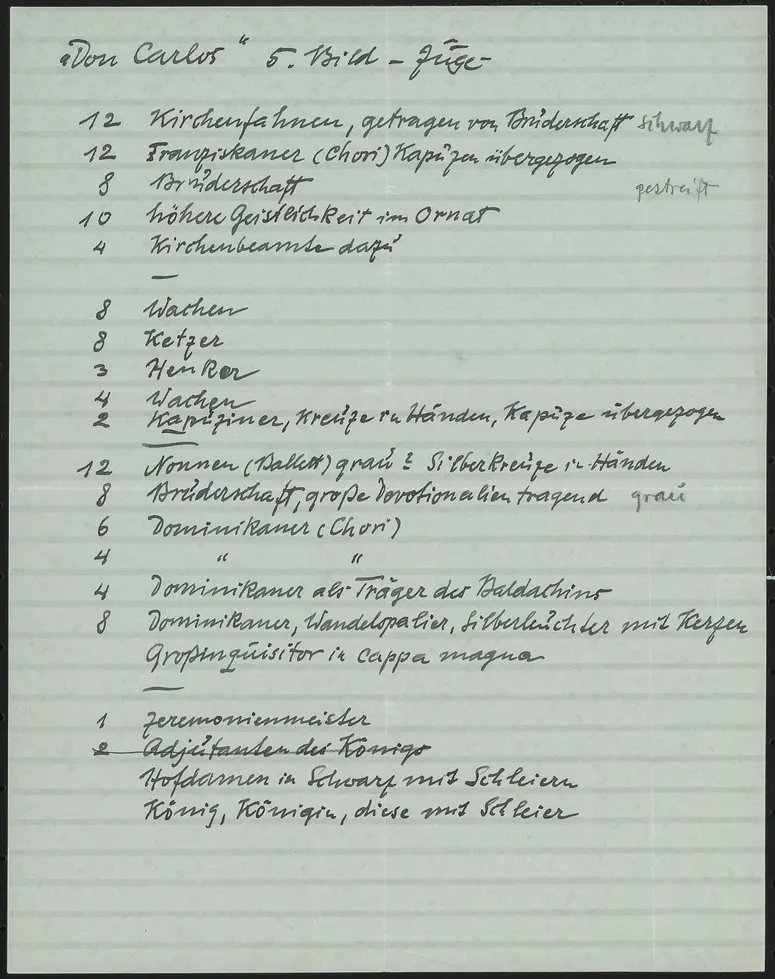 „Don Carlos“ 5. Bild – Züge
12 Kirchenfahnen, getragen von Brüderschaft schwarz
12 Franziskaner (Chori) Kapuzen übergezogen
8 Brüderschaft gestreift
10 höhere Geistlichkeit im Ornat
4 Kirchenbeamte dazu
—
8 Wachen
8 Ketzer
3 Henker
4 Wachen
2 Kapuziner, Kreuze in Händen, Kapuze übergezogen
—
12 Nonnen (Ballett) grau Silberkreuze in Händen
8 Brüderschaft, große Devotionalien tragend grau
6 Dominikaner (Chori)
4 “ “
4 Dominikaner als Träger des Baldachins
8 Dominikaner, Wandelspalier, Silberleuchter mit Kerzen
Großinquisitor in cappa magna
—
1 Zeremonienmeister
2 Adjutanten des Königs
Hofdamen in Schwarz mit Schleiern
König, Königin, diese mit Schleier